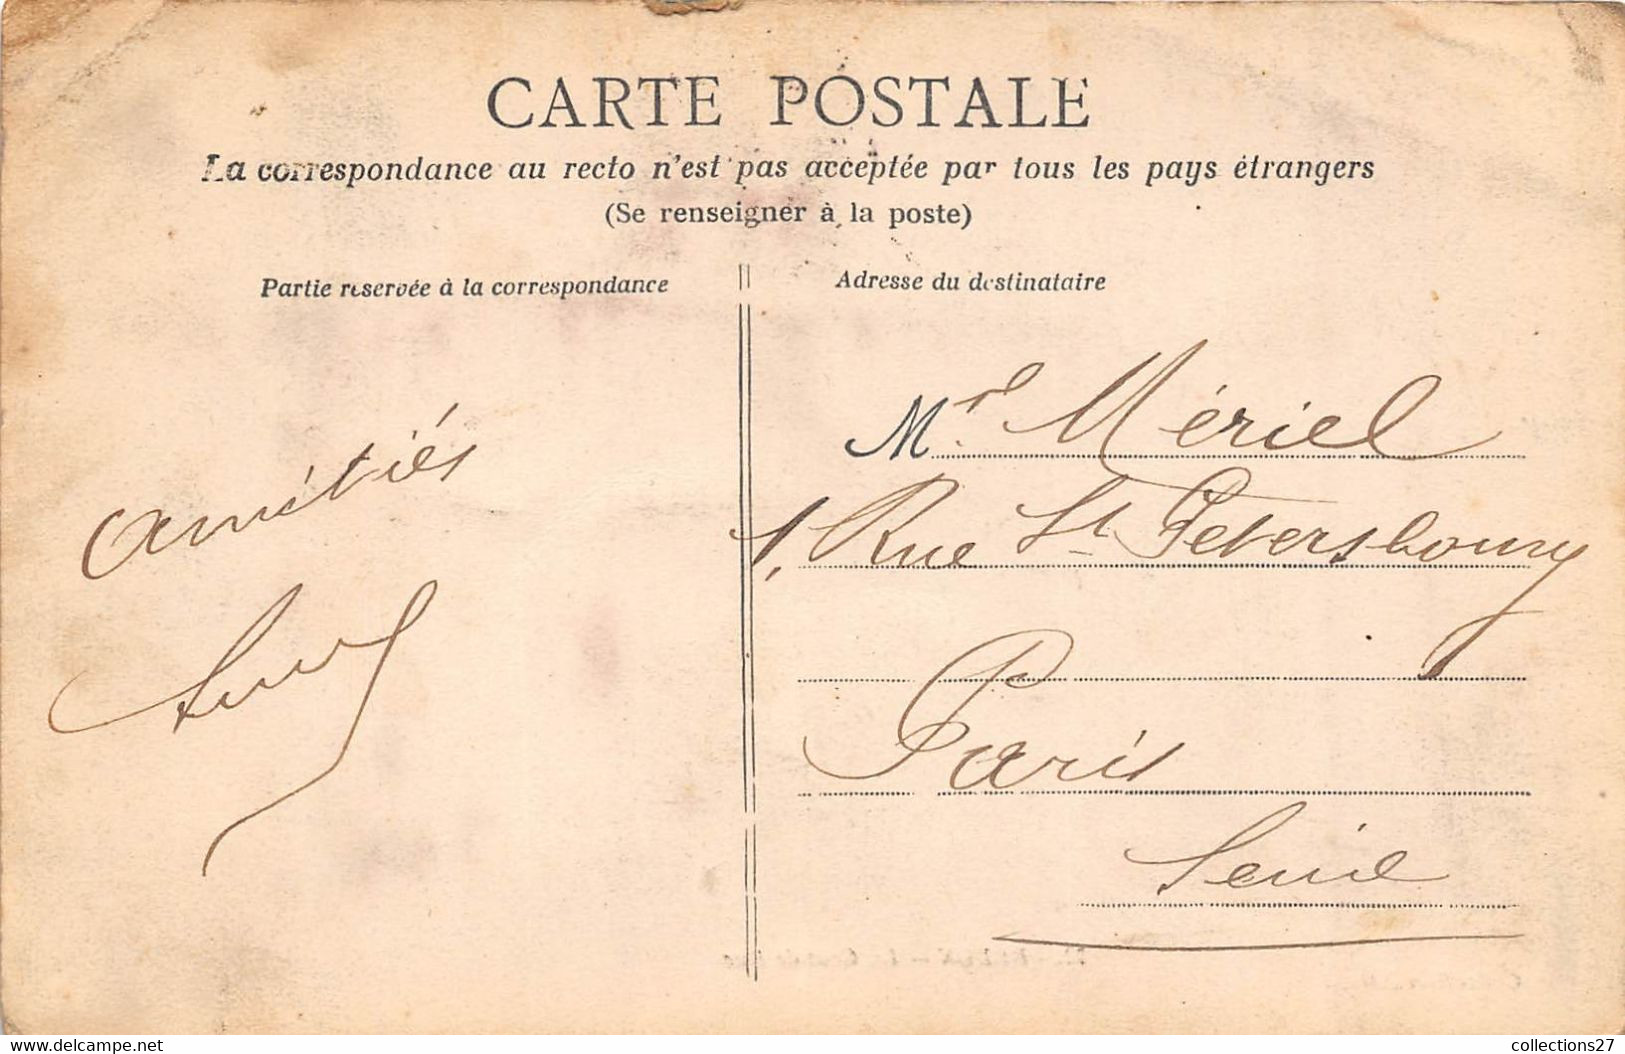 CARTE POSTALE
La correspondance au recto n'est pas acceptée par tous les pays étrangers
(Se renseigner à la poste)
Partie réservée à la correspondance
Adresse du destinataire
Mr. Mériel
1, Rue St Petersbourg
Paris
Seine
Amitiés
www.delcampe.net
collections27